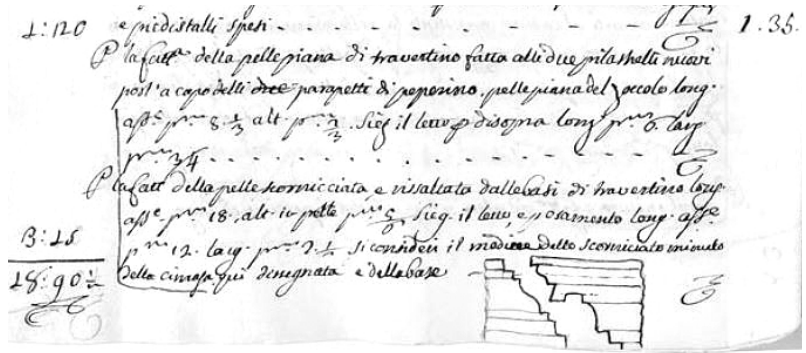 1:120 e piedistalli spesi - - - - - - 1.35.
P la fatt.ᵃ della pelle piana di travertino fatta alli due pilastrelli nuovi
post'a capo delli due parapetti di peperino, pelle piana del zoccolo long.
ass.ᵉ p.ᵐⁱ 8.⅓ alt. p.ᵐⁱ Sieg. il letto p disopra long. p.ᵐⁱ 6. larg
p.ᵐⁱ
P la fatt.ᵃ della pelle scornicciata, e rissaltata dalle basi di travertino long.
ass.ᵉ p.ᵐⁱ 18. alt. in pelle p.ᵐⁱ Sieg. il letto, e posamento long. ass.ᵉ
3:15 p.ᵐⁱ 12. larg. p.ᵐⁱ si consideri il dello scorniciato minuto
18:90½ della cimasa qui disegnata e della base